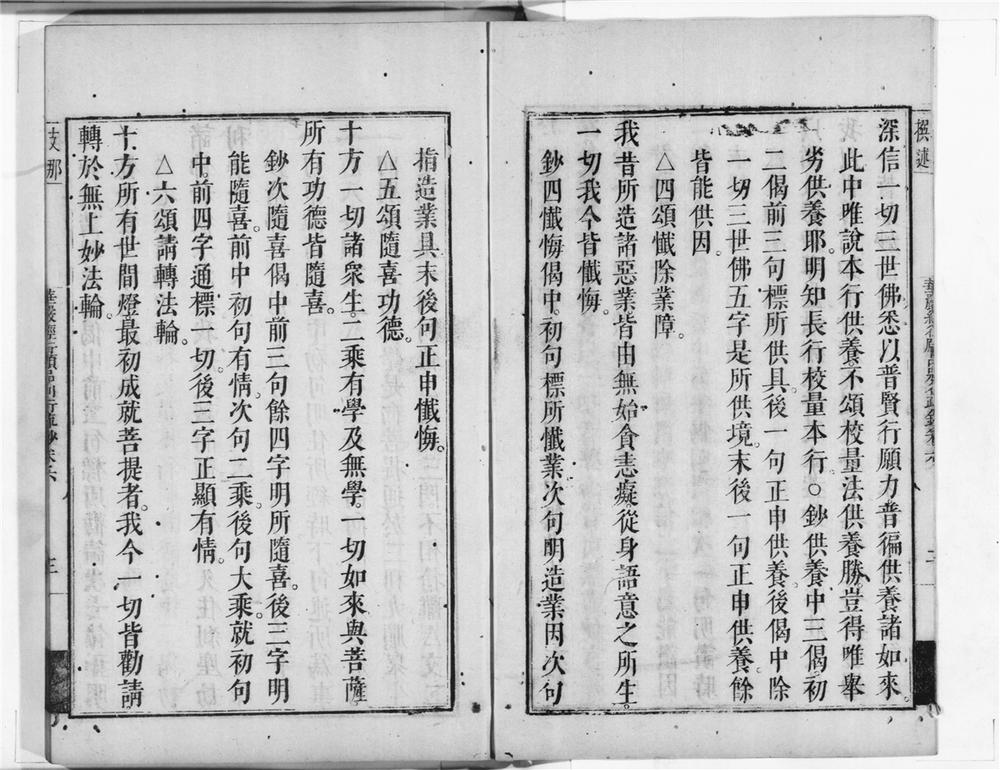 深信一切三世佛悉以普賢行願力普徧供養諸如來。
此中唯說本行供養不頌校量法供養勝豈得唯舉
劣供養耶。明知長行校量本行。○鈔供養中三偈初
二偈前三句標所供具後一句正申供養。後偈中除
一切三世佛五字是所供境。末後一句正申供養。餘
皆能供因。
△四頌懺除業障。
我昔所造諸惡業皆由無始貪恚癡從身語意之所生。
一切我今皆懺悔。
鈔四懺悔偈中。初句標所懺業次句明造業因次句
指造業具末後句正申懺悔。
△五頌隨喜功德。
十方一切諸衆生。二乘有學及無學。一切如來與菩薩
所有功德皆隨喜。
鈔次隨喜偈中前三句餘四字明所隨喜。後三字明
能隨喜。前中初句有情次句二乘後句大乘就初句
中。前四字通標一切後三字正顯有情。
△六頌請轉法輪。
十方所有世間燈最初成就菩提者。我今一切皆勸請
轉於無上妙法輪。